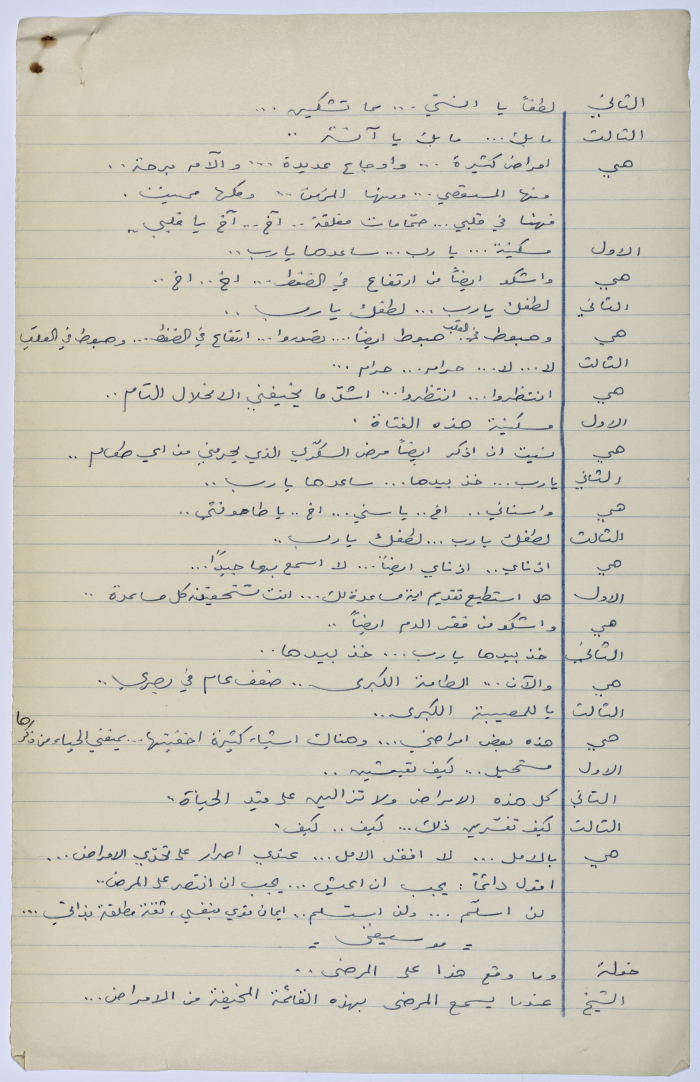 الثاني لطفاً يا اختي ... مما تشكين ...
الثالث ما بك ... ما بك يا آنسة ..
هي امراض كثيرة ... واوجاع عديدة ... وآلام مبرحة ..
منها المستعصي ... ومنها المزمن .. وكلها مميت .
فهنا في قلبي ... صمّامات مغلقة .. آخ ... آخ يا قلبي ..
الاول مسكينة ... يا رب ... ساعدها يا رب ..
هي واشكو ايضاً من ارتفاع في الضغط ... اخ .. اخ ..
الثاني لطفك يا رب ... لطفك يا رب ..
هي وهبوط في القلب .. هبوط ايضاً ... تصوروا ... ارتفاع في الضغط ... وهبوط في القلب
الثالث لا ... لا ... حرام ... حرام ...
هي انتظروا ... انتظروا ... اشق ما يخيفني الانحلال التام ..
الاول مسكينة هذه الفتاة .
هي نسيت ان اذكر ايضاً مرض السكّري الذي يحرمني من اي طعام ..
الثاني يا رب ... خذ بيدها ... ساعدها يا رب ..
هي واسناني .. اخ .. يا سني ... اخ .. يا طاحونتي ..
الثالث لطفك يا رب ... لطفك يا رب ..
هي اذناي .. اذناي ايضاً ... لا اسمع بهما جيداً ...
الاول هل استطيع تقديم اية مساعدة لك ... انت تستحقين كل مساعدة ..
هي واشكو من فقر الدم ايضاً ..
الثاني خذ بيدها يا رب ... خذ بيدها ..
هي والآن ... الطامة الكبرى ... ضعف عام في بصري ..
الثالث يا للمصيبة الكبرى ..
هي هذه بعض امراضي ... وهناك اشياء كثيرة اخفيتها ... يمنعني الحياء من ذكرها
الاول مستحيل ... كيف تعيشين ..
الثاني كل هذه الامراض ولا تزالين على قيد الحياة ..
الثالث كيف تفسرين ذلك ... كيف .. كيف .
هي بالامل ... لا افقد الامل ... عندي اصرار على تحدّي الامراض ...
اقول دائماً : يجب ان اعيش ... يجب ان انتصر على المرض ..
لن اسلّم ... ولن استسلم .. ايمان قوي بنفسي ، ثقة مطلقة بذاتي ...
- موسيقى -
خولة وما وقع هذا على المرضى ..
الشيخ عندما يسمع المرضى بهذه القائمة المخيفة من الامراض ...